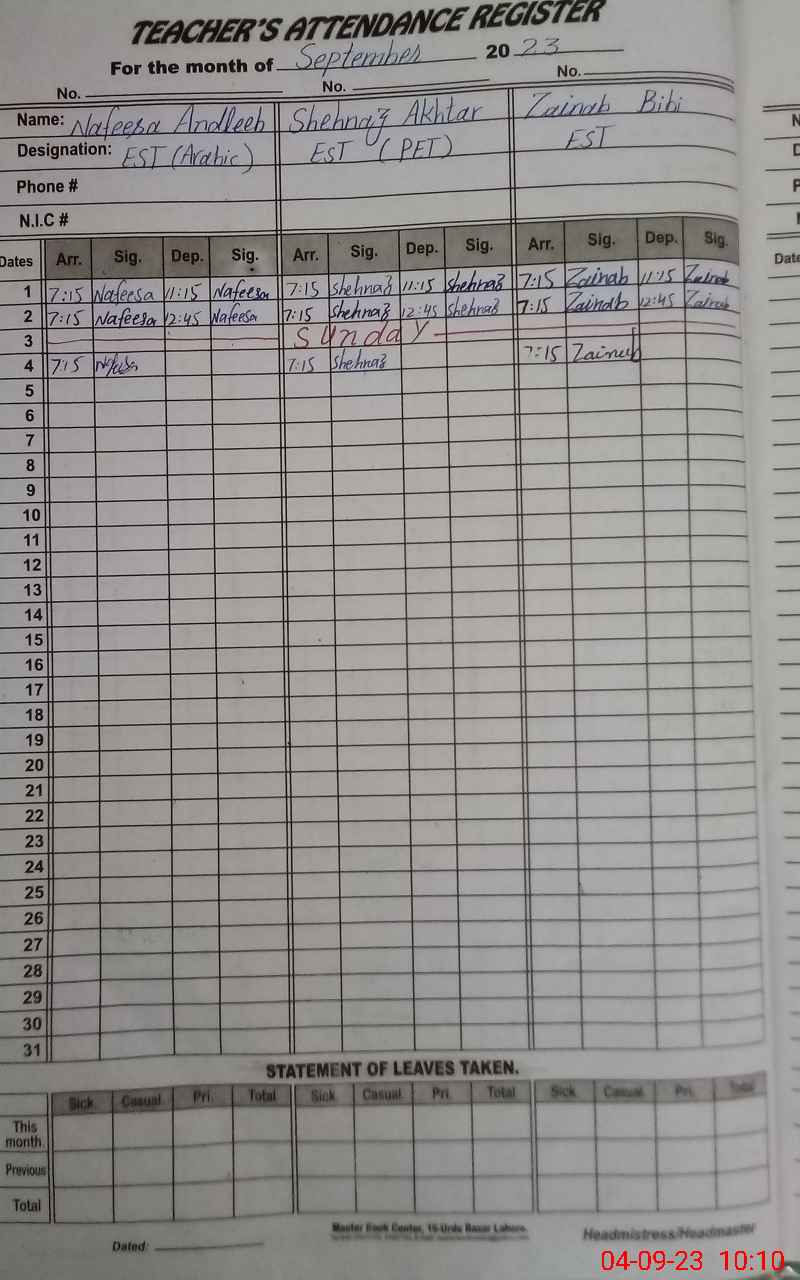 TEACHER'S ATTENDANCE REGISTER
For the month of September 20 23
No. No. No.
Name: Nafeesa Andleeb Shehnaz Akhtar Zainab Bibi
Designation: EST (Arabic) EST (PET) EST
Phone #
N.I.C #
Dates Arr. Sig. Dep. Sig. Arr. Sig. Dep. Sig. Arr. Sig. Dep. Sig.
1 7:15 Nafeesa 11:15 Nafeesa 7:15 Shehnaz 11:15 Shehnaz 7:15 Zainab 11:15 Zainab
2 7:15 Nafeesa 12:45 Nafeesa 7:15 Shehnaz 12:45 Shehnaz 7:15 Zainab 12:45 Zainab
3 Sunday
4 7:15 7:15 Shehnaz 7:15 Zainab
5
6
7
8
9
10
11
12
13
14
15
16
17
18
19
20
21
22
23
24
25
26
27
28
29
30
31
STATEMENT OF LEAVES TAKEN.
Sick. Casual. Pri. Total Sick. Casual. Pri. Total Sick. Casual. Pri. Total
This
month.
Previous
Total
Master Book Center, 16-Urdu Bazar Lahore.
Dated: Headmistress/Headmaster
04-09-23 10:10